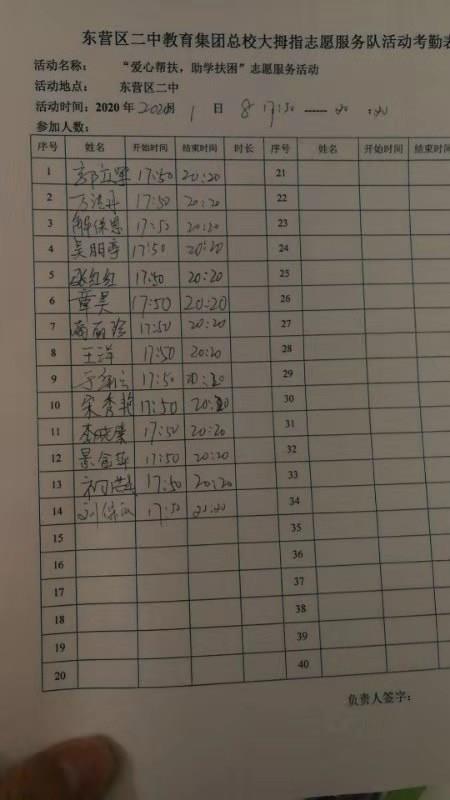 东营区二中教育集团总校大拇指志愿服务队活动考勤表
活动名称：“爱心帮扶，助学扶困”志愿服务活动
活动地点： 东营区二中
活动时间：2020年 1 日 8 17:50 ------
参加人数：
序号 姓名 开始时间 结束时间 时长 序号 姓名 开始时间 结束时间
1 17:50 20:20 21
2 17:50 20:20 22
3 17:50 20:20 23
4 吴朋亭 17:50 20:20 24
5 红红 17:50 20:20 25
6 董昊 17:50 20:20 26
7 17:50 20:20 27
8 王洋 17:50 20:20 28
9 17:50 20:20 29
10 宋秀艳 17:50 20:20 30
11 李晓 17:50 20:20 31
12 景金华 17:50 20:20 32
13 17:50 20:20 33
14 刘保 17:50 34
15 35
16 36
17 37
18 38
19 39
20 40
负责人签字：